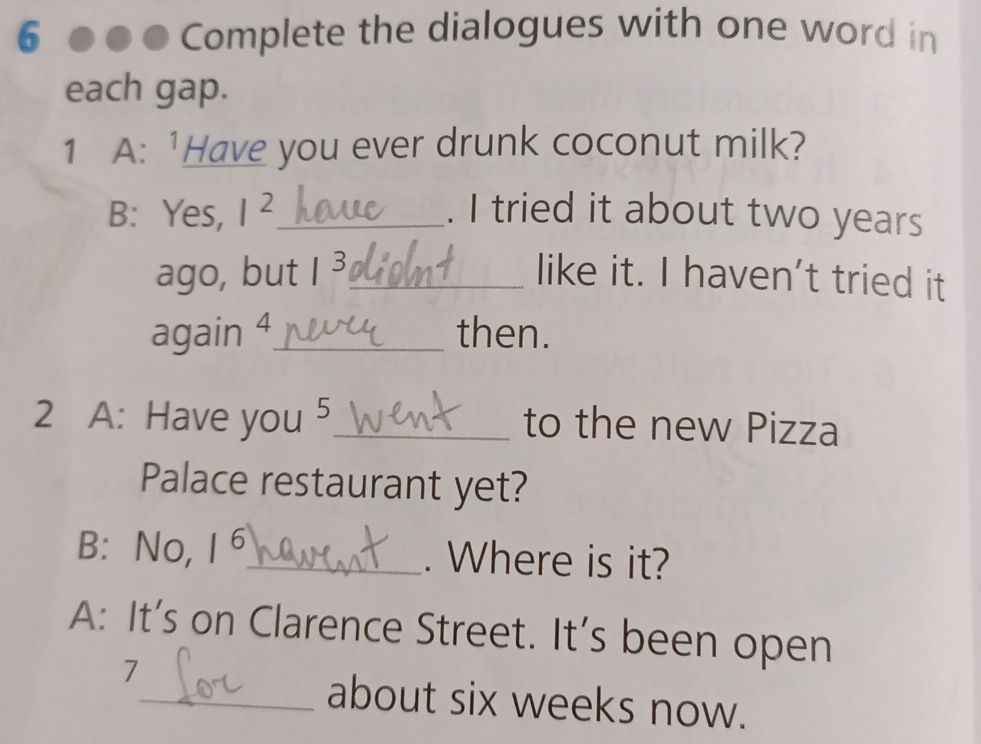 6 Complete the dialogues with one word in
each gap.
1 A: ¹Have you ever drunk coconut milk?
B: Yes, I ² have. I tried it about two years
ago, but I ³didnt like it. I haven't tried it
again ⁴ never then.
2 A: Have you ⁵ went to the new Pizza
Palace restaurant yet?
B: No, I ⁶ havent. Where is it?
A: It's on Clarence Street. It's been open
⁷ for about six weeks now.